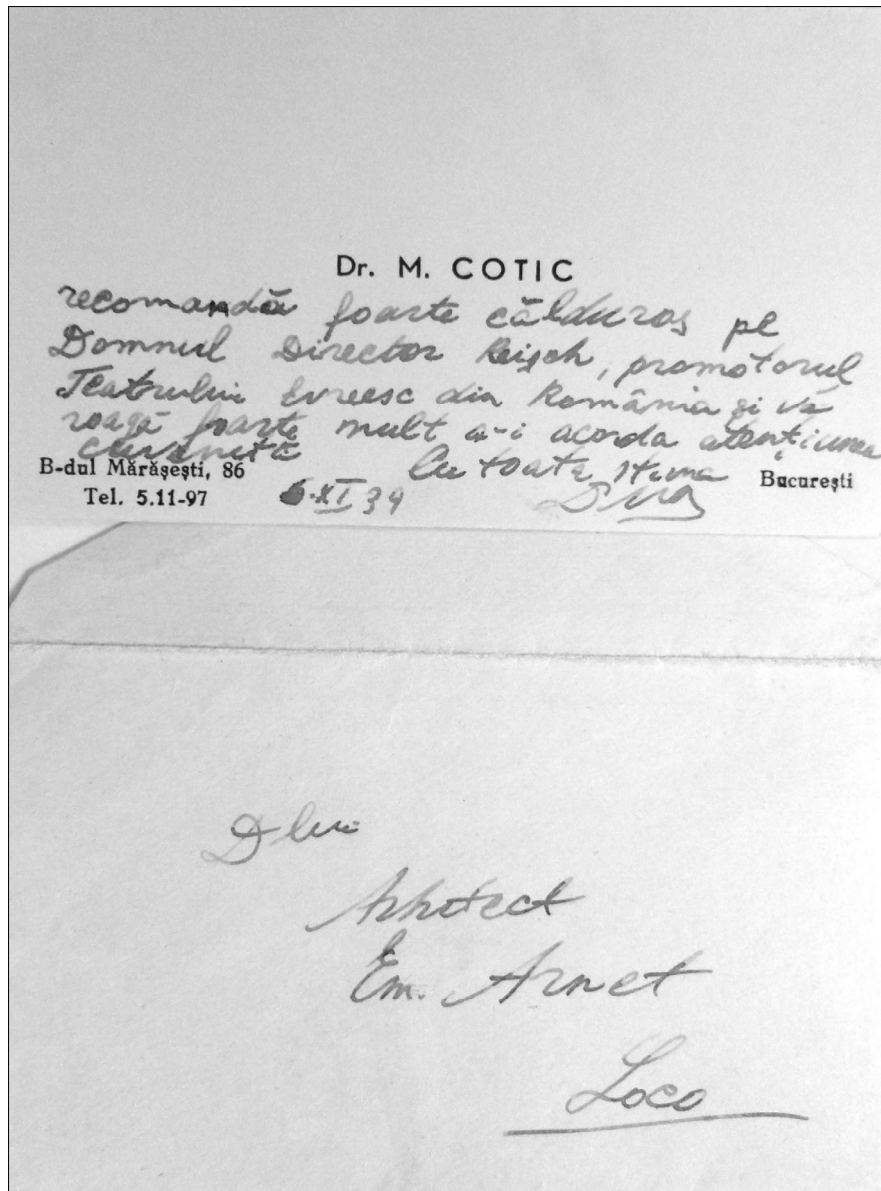 Dr. M. COTIC
recomandă foarte călduros pe
Domnul Director Reisch, promotorul
Teatrului Evreesc din România și vă
roagă foarte mult a-i acorda atențiunea
cuvenită
Cu toată stima
B-dul Mărășești, 86
Tel. 5.11-97
6.XI 39
București
Dlui
Arhitect
Em. Arnet
Loco